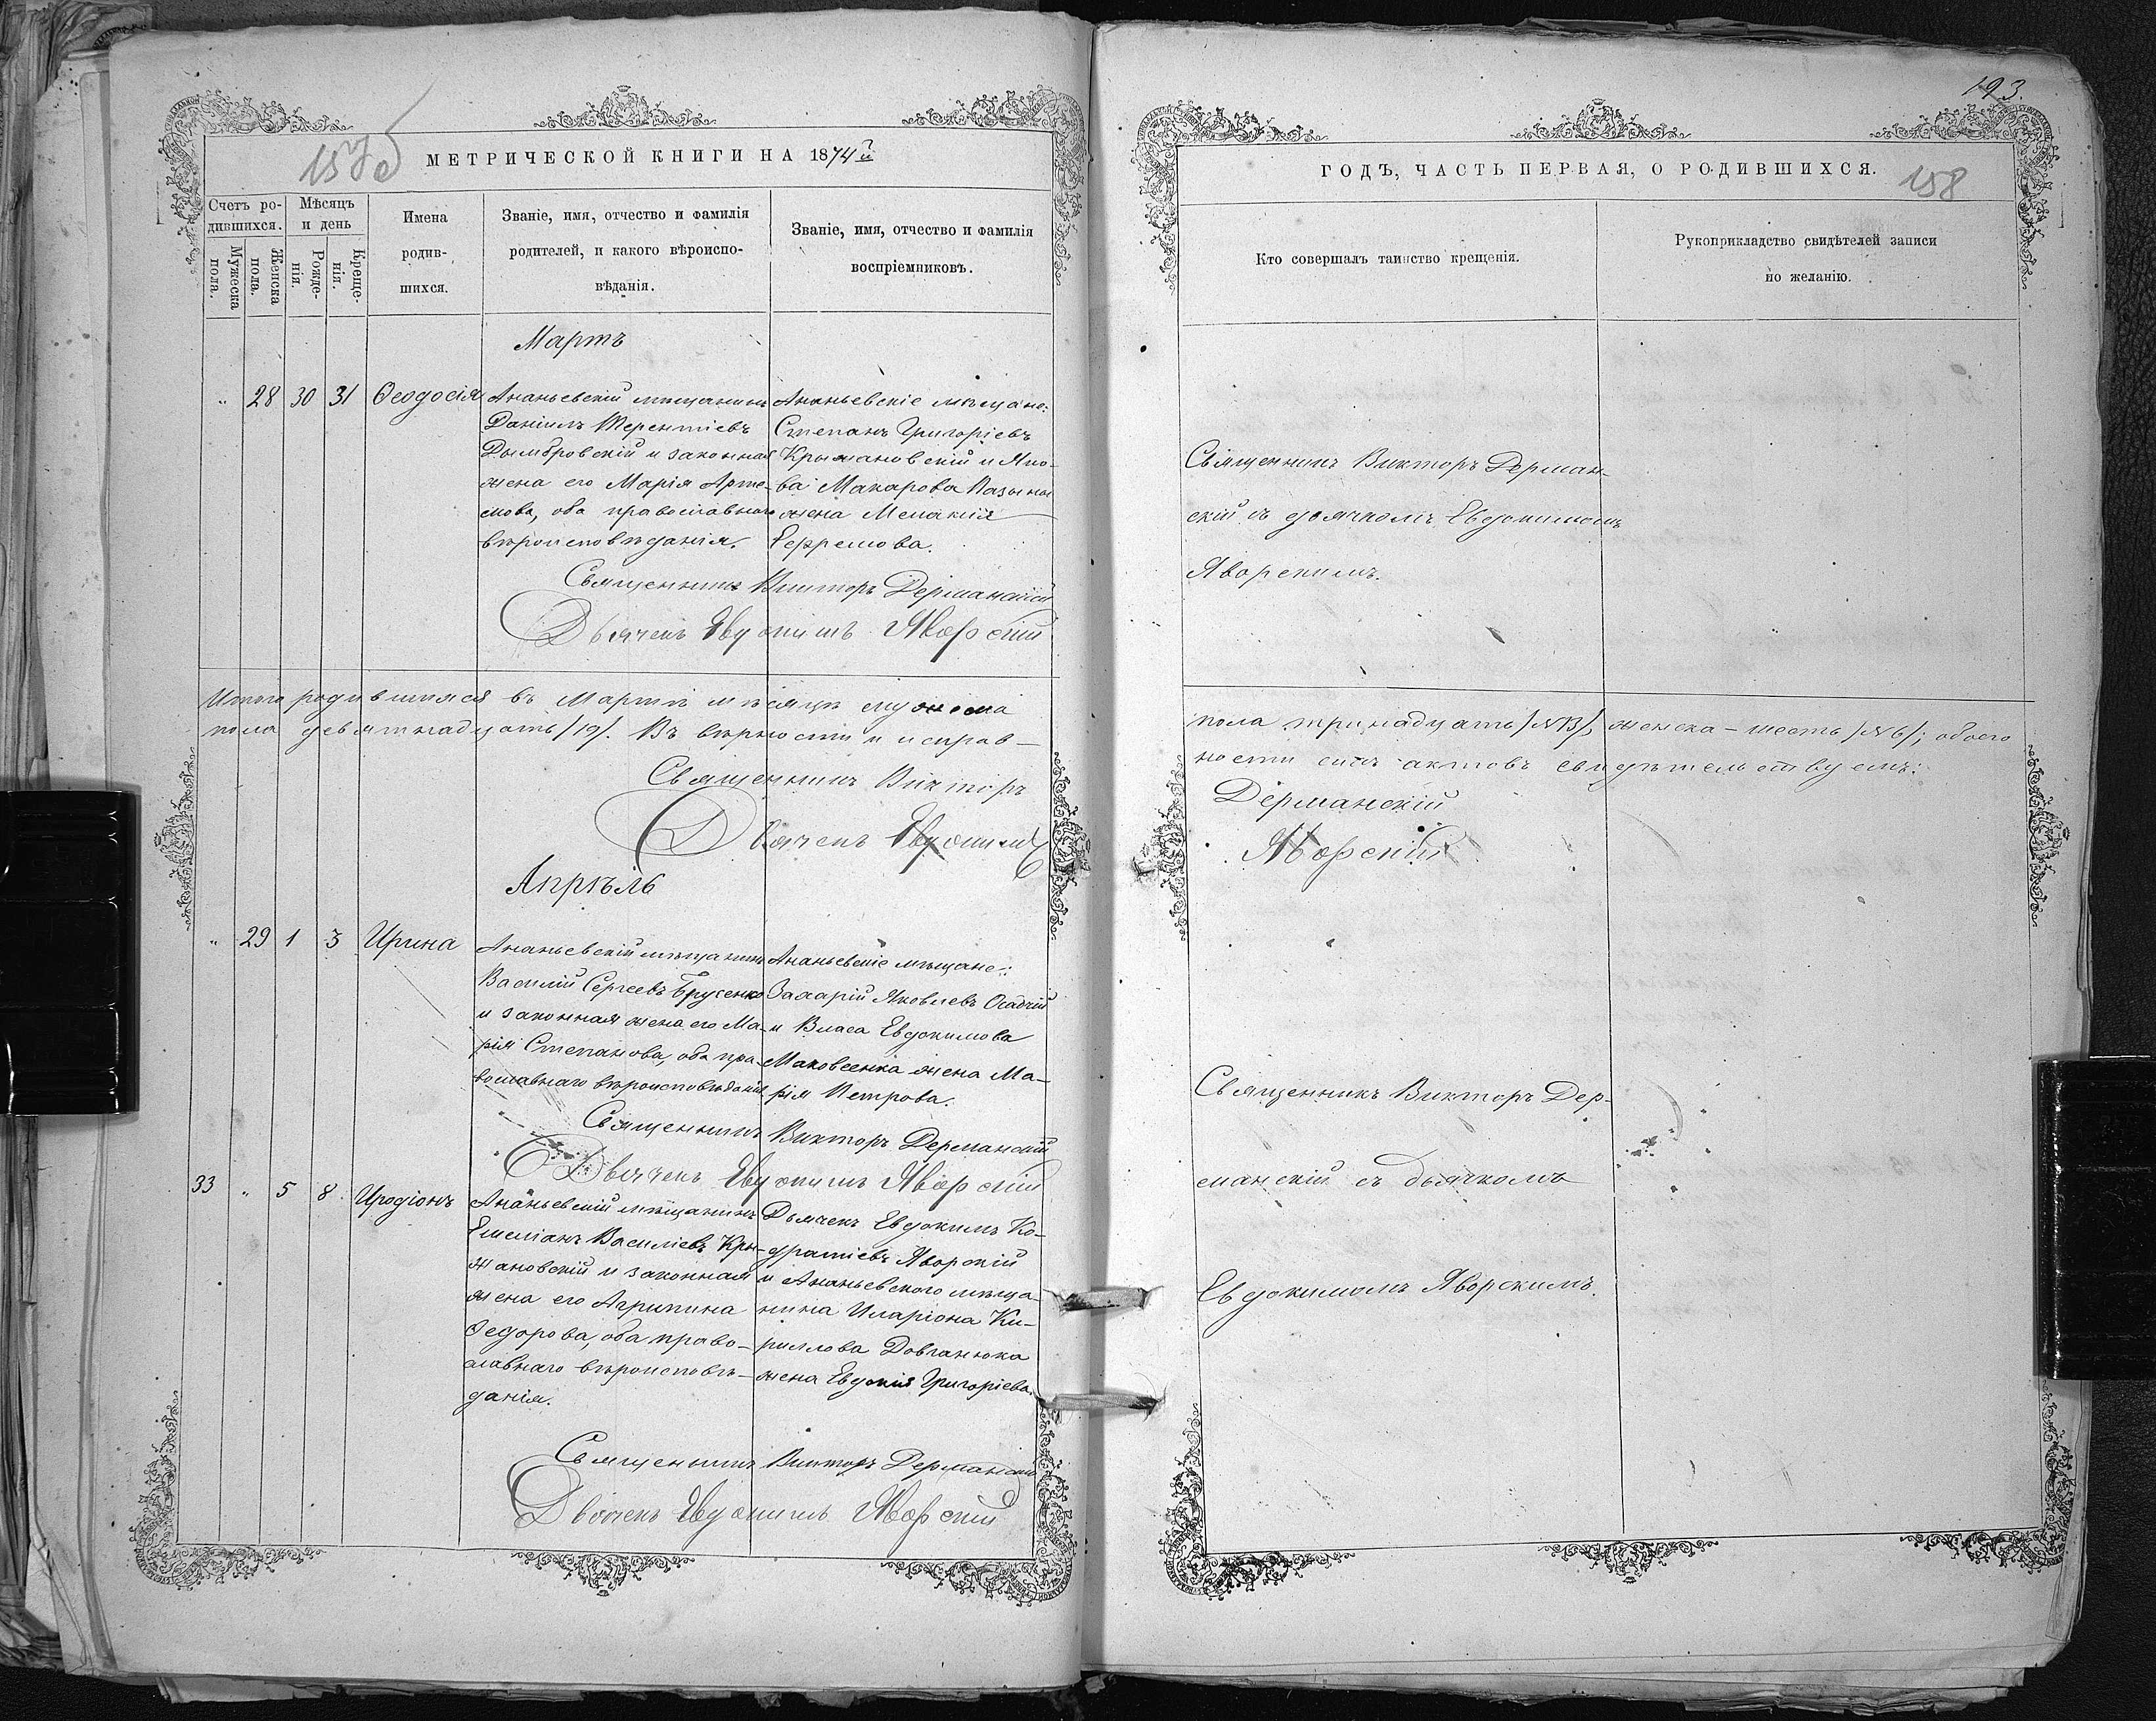 193.
157об
МЕТРИЧЕСКОЙ КНИГИ НА 1874й
Счетъ ро-
дившихся.
Мужеска
пола.
Женска
пола.
Мѣсяцъ
и день
Рожде-
нія.
Креще-
нія.
Имена
родив-
шихся.
Званіе, имя, отчество и фамилія
родителей, и какого вѣроиспо-
вѣданія.
Званіе, имя, отчество и фамилія
воспріемниковъ.
Мартъ
„ 28 30 31 Ѳеодосія
Ананьевскій мѣщанинъ
Даніилъ Терентіевъ
Дымбровскій и законная
жена его Марія Арте-
мова, оба православнаго
вѣроисповѣданія.
Ананьевскіе мѣщане:
Степанъ Григоріевъ
Крыжановскій и Яко-
ва Макарова
жена Меланія
Ефремова.
Священникъ Викторъ Дерманскій
Дьячекъ Евдокимъ Яворскій
Итого родившихся въ Мартѣ мѣсяцѣ мужеска
пола девятнадцать /19/. Въ вѣрности и исправ-
Священникъ Викторъ
Дьячекъ Евдокимъ
Апрѣль
„ 29 1 3 Ирина
Ананьевскій мѣщанинъ
Василій Сергеевъ Брусенко
и законная жена его Ма-
рія Степанова, оба пра-
вославнаго вѣроисповѣданія.
Ананьевскіе мѣщане:
Захарій Яковлевъ Осадчій
и Власа Евдокимова
Маковеенка жена Ма-
рія Петрова.
Священникъ Викторъ Дерманскій
Дьячекъ Евдокимъ Яворскій
33 „ 5 8 Иродіонъ
Ананьевскій мѣщанинъ
Емеліанъ Василіевъ Кры-
жановскій и законная
жена его Агрипина
Ѳедорова, оба право-
славнаго вѣроисповѣ-
данія.
Дьячекъ Евдокимъ Ко-
дратіевъ Яворскій
и Ананьевского мѣща-
нина Иларіона Ки-
риллова Довганюка
жена Евдокія Григоріева.
Священникъ Викторъ Дерманскій
Дьячекъ Евдокимъ Яворскій
ГОДЪ, ЧАСТЬ ПЕРВАЯ, О РОДИВШИХСЯ.
158
Кто совершалъ таинство крещенія.
Рукоприкладство свидѣтелей записи
по желанію.
Священникъ Викторъ Дерман-
скій съ дьячкомъ Евдокимомъ
Яворскимъ.
пола тринадцать /№13/, женска - шесть /№6/; обоего
ности сихъ актовъ свидѣтельствуемъ:
Дерманскій
Яворскій
Священникъ Викторъ Дер-
манскій съ дьячкомъ
Евдокимомъ Яворскимъ.